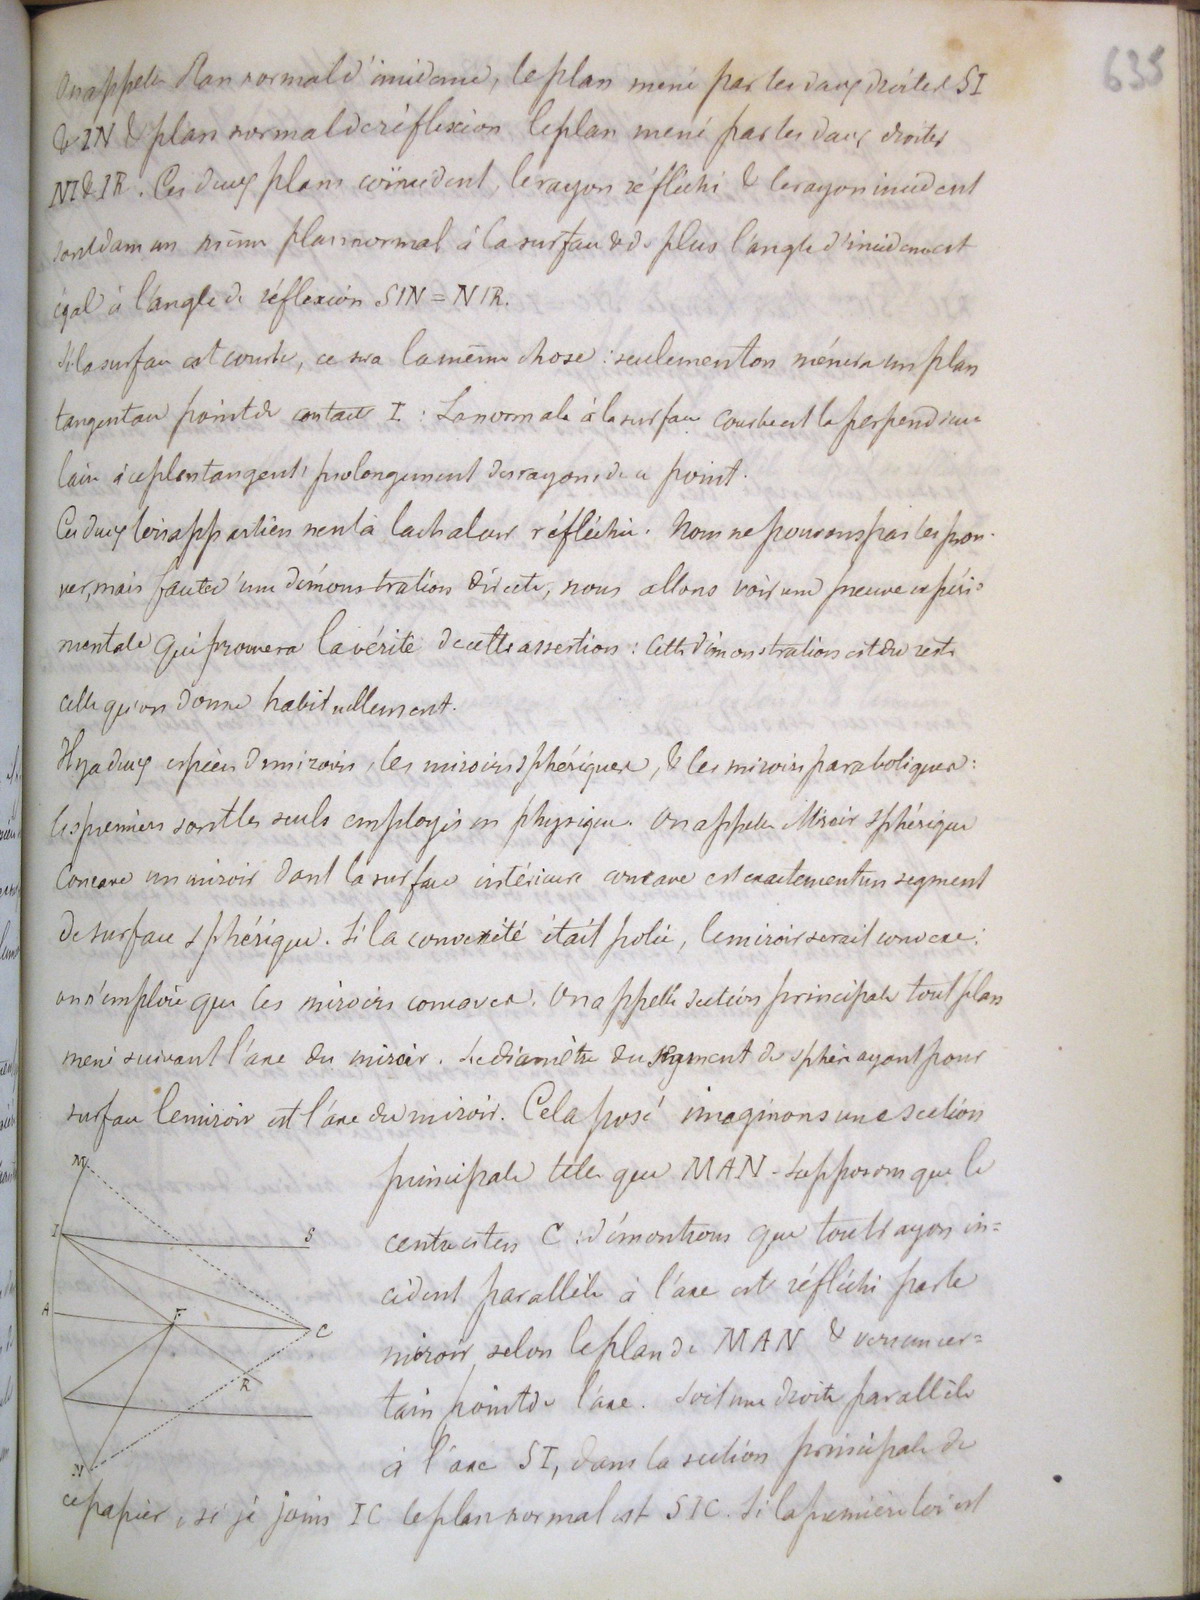 635
On appelle Plan normal d'incidence, le plan mené par les deux droites SI
& IN & plan normal de réflexion le plan mené par les deux droites
NI & IR. Ces deux plans coïncident, le rayon réfléchi & le rayon incident
sont dans un même plan normal à la surface & de plus l'angle d'incidence est
égal à l'angle de réflexion SIN = NIR.
Si la surface est courbe, ce sera la même chose : seulement on mènera un plan
tangent au point de contact I : La normale à la surface courbe est la perpendicu
laire à ce plan tangent, prolongement des rayons de ce point.
Ces deux lois appartiennent à la chaleur réfléchie. Nous ne pouvons pas les prou-
ver, mais faute d'une démonstration directe, nous allons voir une preuve expéri-
mentale qui prouvera la vérité de cette assertion : cette démonstration est du reste
celle qu'on donne habituellement.
Il y a deux espèces de miroirs, les miroirs sphériques, & les miroirs paraboliques :
les premiers sont les seuls employés en physique. On appelle Miroir sphérique
Concave un miroir dont la surface intérieure concave est exactement un segment
de surface sphérique. Si la convexité était polie, le miroir serait convexe :
on n'emploie que les miroirs concaves. On appelle section principale tout plan
mené suivant l'axe du miroir. Le diamètre du segment de sphère ayant pour
surface le miroir est l'axe du miroir. Cela posé imaginons une section
principale telle que MAN - Supposons que le
centre est en C : démontrons que tout rayon in=
cident parallèle à l'axe est réfléchi par le
miroir, selon le plan de MAN & vers un cer=
tain point de l'axe. Soit une droite parallèle
à l'axe SI, dans la section principale de
ce papier, si je joins IC le plan normal est SIC. Si la première loi est
M
I
S
A
F
C
R
N